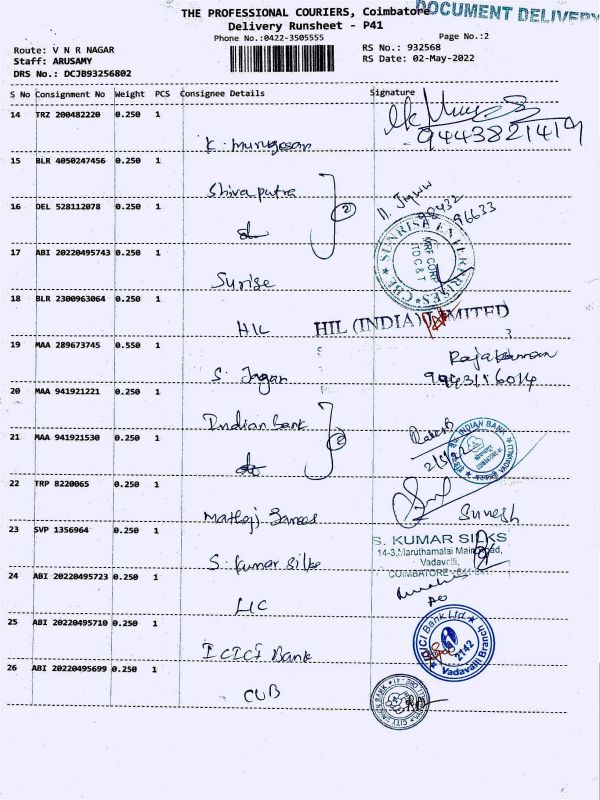 THE PROFESSIONAL COURIERS, Coimbatore
DOCUMENT DELIVERY
Delivery Runsheet - P41
Phone No.:0422-3505555
Page No.:2
Route: V N R NAGAR
RS No.: 932568
Staff: ARUSAMY
RS Date: 02-May-2022
DRS No.: DCJB93256802
S No Consignment No Weight PCS Consignee Details Signature
14 TRZ 200482220 0.250 1
9443821419
K. Murugesan
15 BLR 4050247456 0.250 1
Shivaputra
2
16 DEL 528112078 0.250 1
do
98432 96633
17 ABI 20220495743 0.250 1
SUNRISE ENTERPRISES CBE
MRF CORP
TO C & T
Surise
18 BLR 2300963064 0.250 1
HIL
HIL (INDIA) LIMITED
19 MAA 289673745 0.550 1
S. Jagan
20 MAA 941921221 0.250 1
Indian bank
2
21 MAA 941921530 0.250 1
do
INDIAN BANK
VADAVALLI
22 TRP 8220065 0.250 1
Suresh
23 SVP 1356964 0.250 1
S. KUMAR SILKS
14-3,Maruthamalai Main Road,
Vadavalli,
COIMBATORE - 641 041.
S. Kumar Silks
24 ABI 20220495723 0.250 1
LIC
25 ABI 20220495710 0.250 1
ICICI Bank Ltd.
2142
Vadavalli Branch
ICICI Bank
26 ABI 20220495699 0.250 1
CUB
CITY UNION BANK